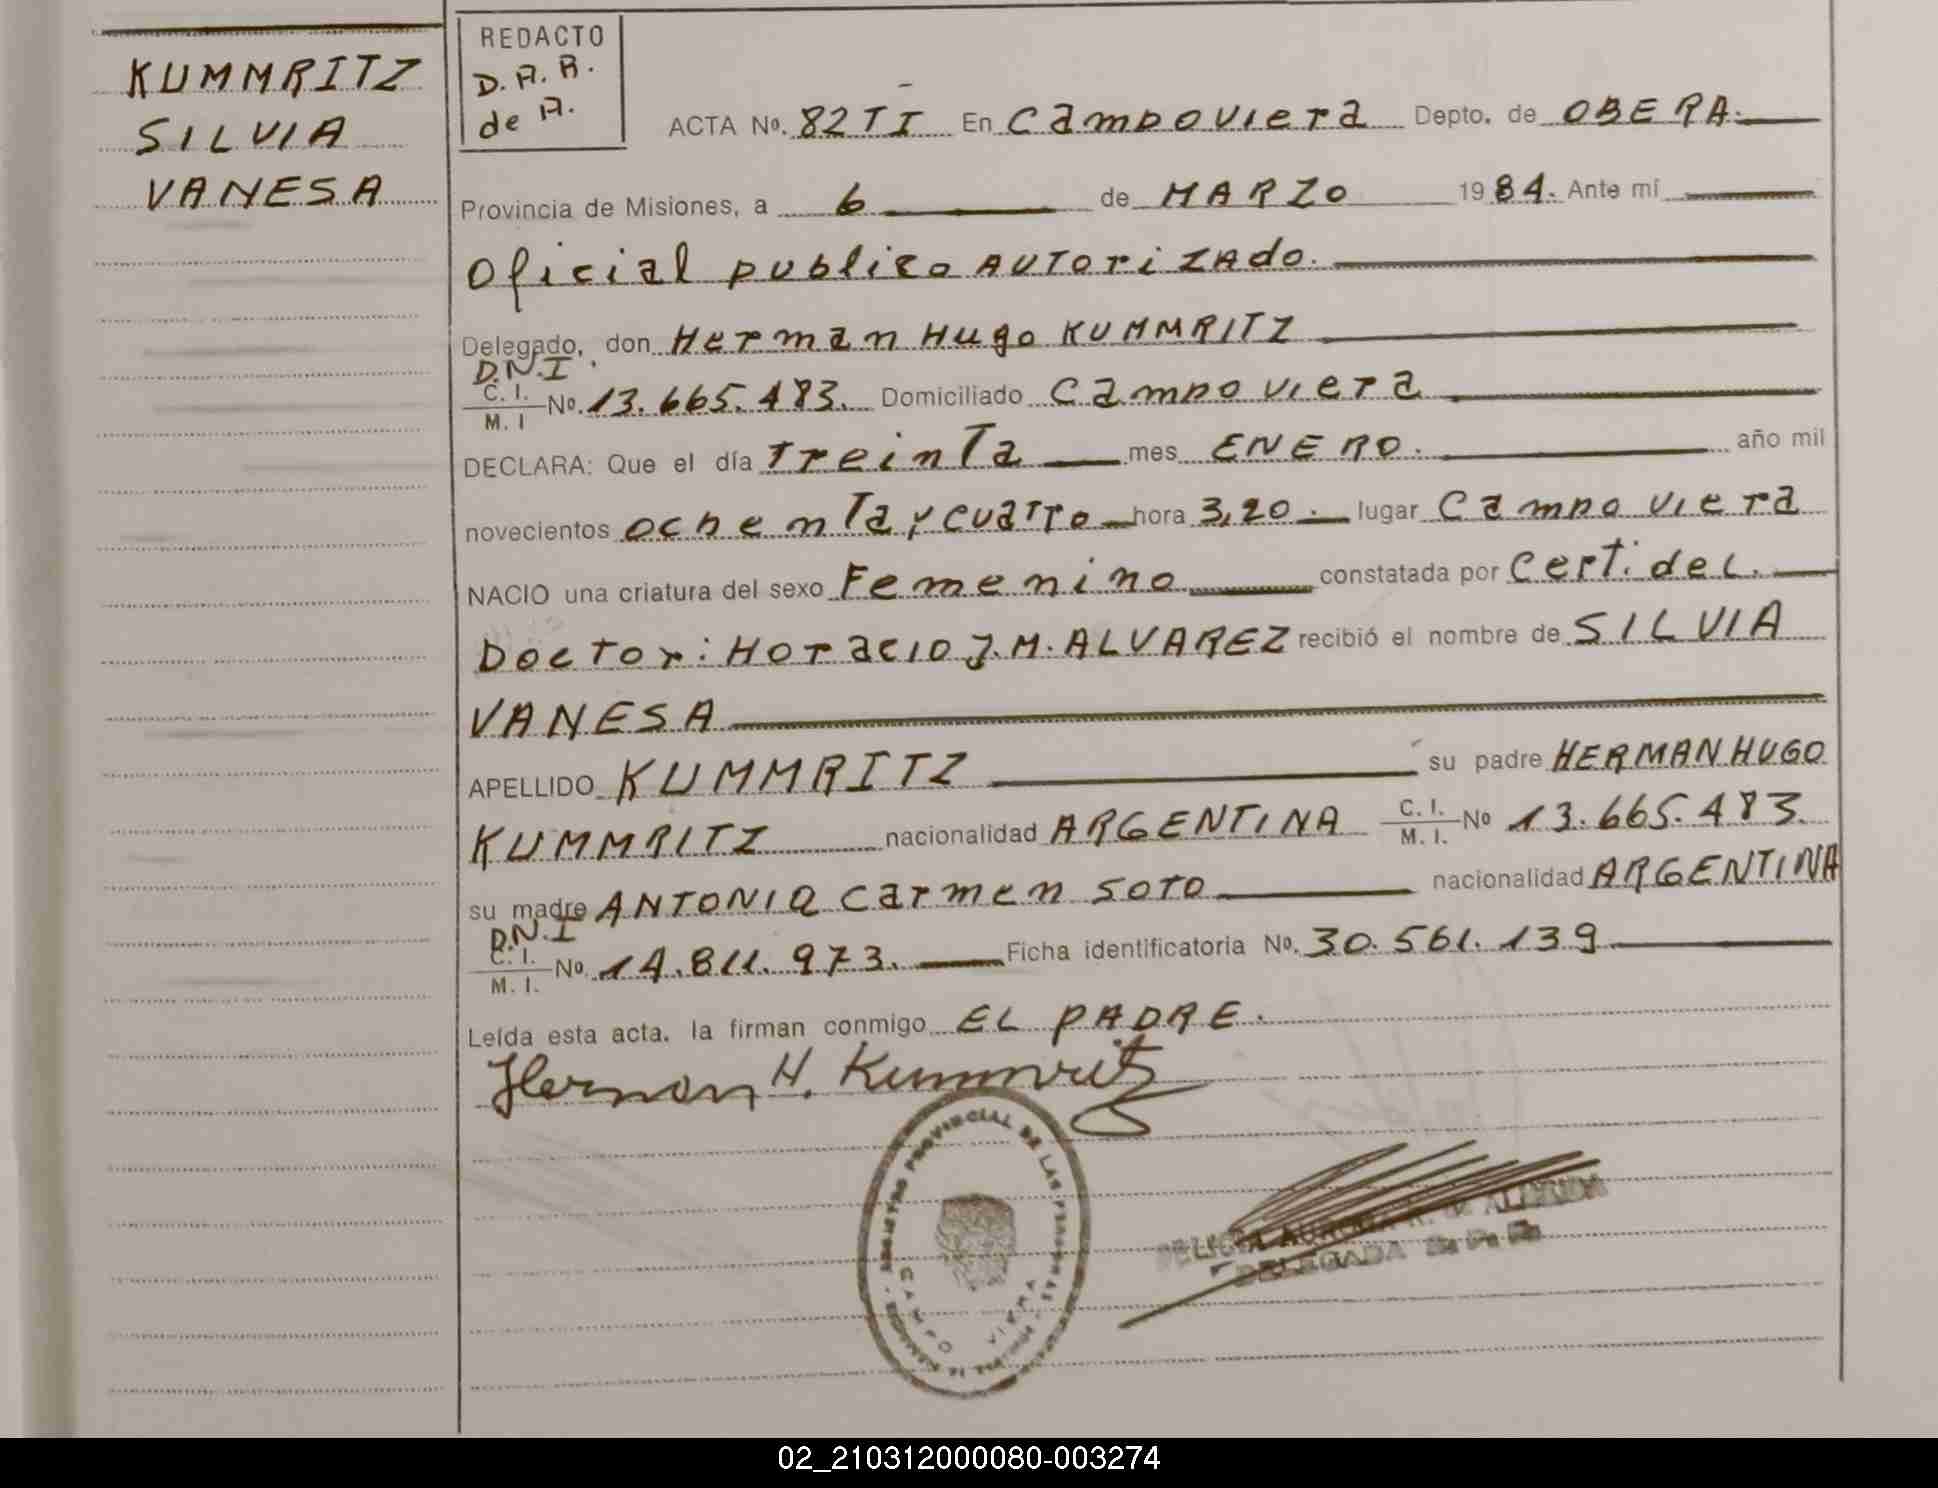 KUMMRITZ
SILVIA
VANESA
REDACTO
D.A.R.
de A.
ACTA Nº. 82 TI En Campo Viera Depto. de OBERA.
Provincia de Misiones, a 6 de MARZO 1984. Ante mí
Oficial publico AUTOriZAdo.
Delegado, don Herman Hugo KUMMRITZ
D.N.I.
C. I.
M. I Nº. 13.665.483. Domiciliado Campo Viera
DECLARA: Que el día treinTa mes ENERO. año mil
novecientos ochenTa y cuatro hora 3,20. lugar Campo Viera
NACIO una criatura del sexo Femenino constatada por Cert. del.
Doctor: Horacio J.M. ALVAREZ recibió el nombre de SILVIA
VANESA
APELLIDO KUMMRITZ su padre HERMAN HUGO
KUMMRITZ nacionalidad ARGENTINA C. I. M. I. Nº 13.665.483.
su madre ANTONIA Carmen SOTO nacionalidad ARGENTINA
D.N.I
C. I.
M. I. Nº. 14.811.973. Ficha identificatoria Nº. 30.561.139
Leída esta acta, la firman conmigo EL PADRE.
Herman H. Kummritz
REGISTRO PROVINCIAL DE LAS PERSONAS
CAMPO VIERA
DELEGADA
02_210312000080-003274